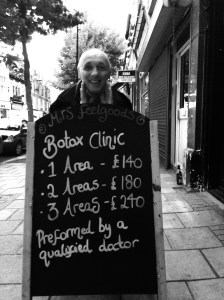 Mrs Feelgoods
Botox Clinic
• 1 Area - £140
• 2 Areas - £180
• 3 Areas - £240
Preformed by a
qualified doctor